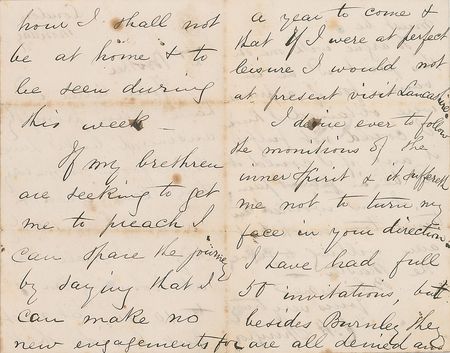 hour I shall not
be at home & to
be seen during
this week —
If my brethren
are seeking to get
me to preach I
can spare the journey
by saying that I
can make no
new engagements for
a year to come &
that if I were at perfect
leisure I would not
at present visit Lancashire.
I desire ever to follow
the monitions of the
inner Spirit & it suffereth
me not to turn my
face in your direction.
I have had full
50 invitations, but
besides Burnley they
are all denied and